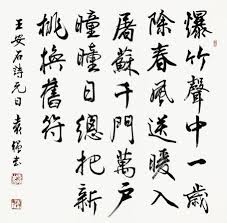 爆竹聲中一歲
除春風送暖入
屠蘇千門萬戶
曈曈日總把新
桃換舊符
王安石詩元日 袁